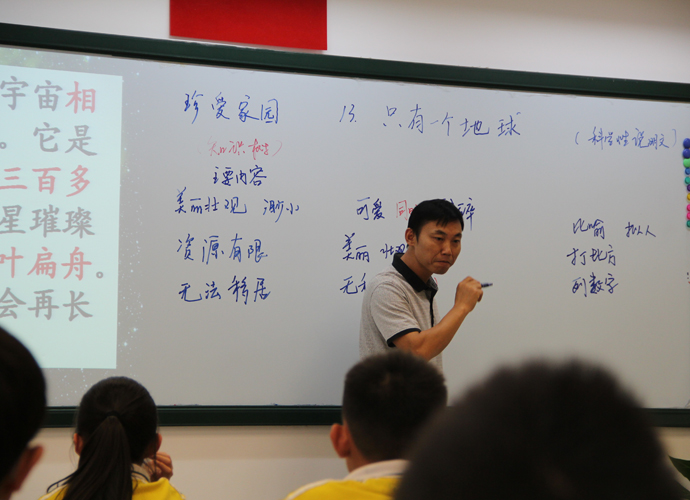 宇宙相
。它是
三百多
星璀璨
叶扁舟。
会再长
珍爱家园
13. 只有一个地球
(科学性说明文)
主要内容
美丽壮观 渺小
可爱
资源有限
美丽 壮
无法移居
无
比喻 拟人
打比方
列数字